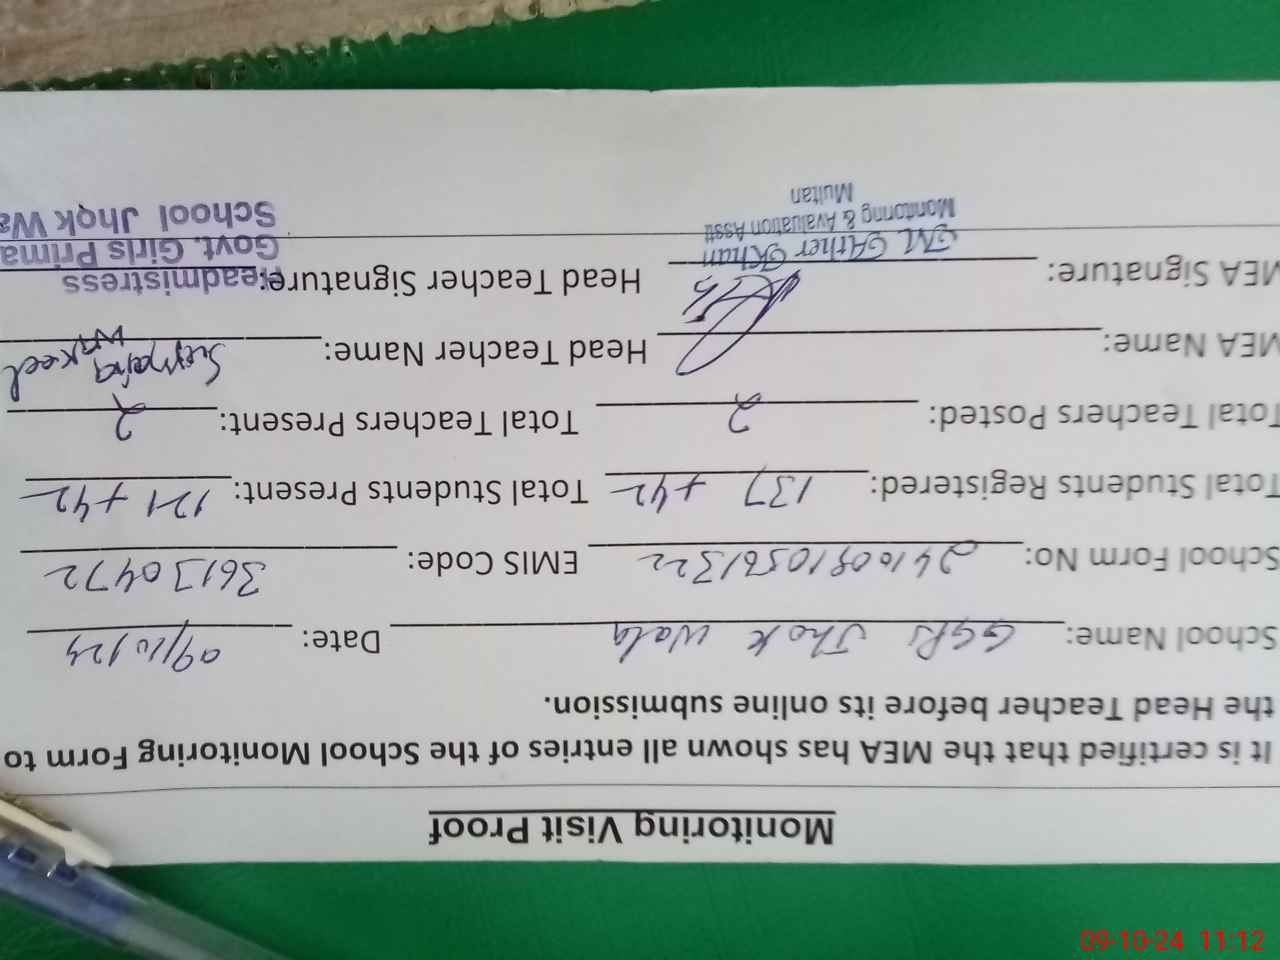 Monitoring Visit Proof
It is certified that the MEA has shown all entries of the School Monitoring Form to
the Head Teacher before its online submission.
School Name: GGPS Jhok Wala Date: 09/10/24
School Form No: 24100910561322 EMIS Code: 36130472
Total Students Registered: 137 +42 Total Students Present: 121 +42
Total Teachers Posted: 2 Total Teachers Present: 2
MEA Name: Head Teacher Name: Sumaira Wakeel
MEA Signature: Head Teacher Signature:
M. Ather Khan
Monitoring & Avaluation Asstt
Multan
eadmistress
Govt. Girls Prima
School Jhok Wa
09-10-24 11:12